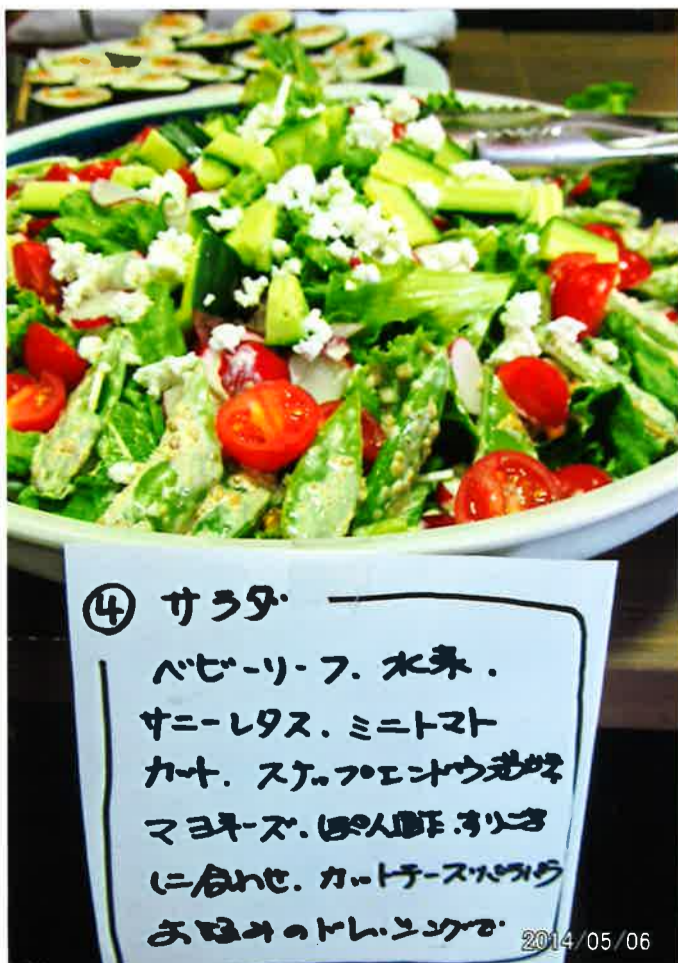 ④ サラダ
ベビーリーフ、水菜、
サニーレタス、ミニトマト
カット、スナップエンドウ
マヨネーズ、ぽん酢、すりごま
に合わせ、カットチーズパラパラ
お好みのドレッシングで
2014/05/06